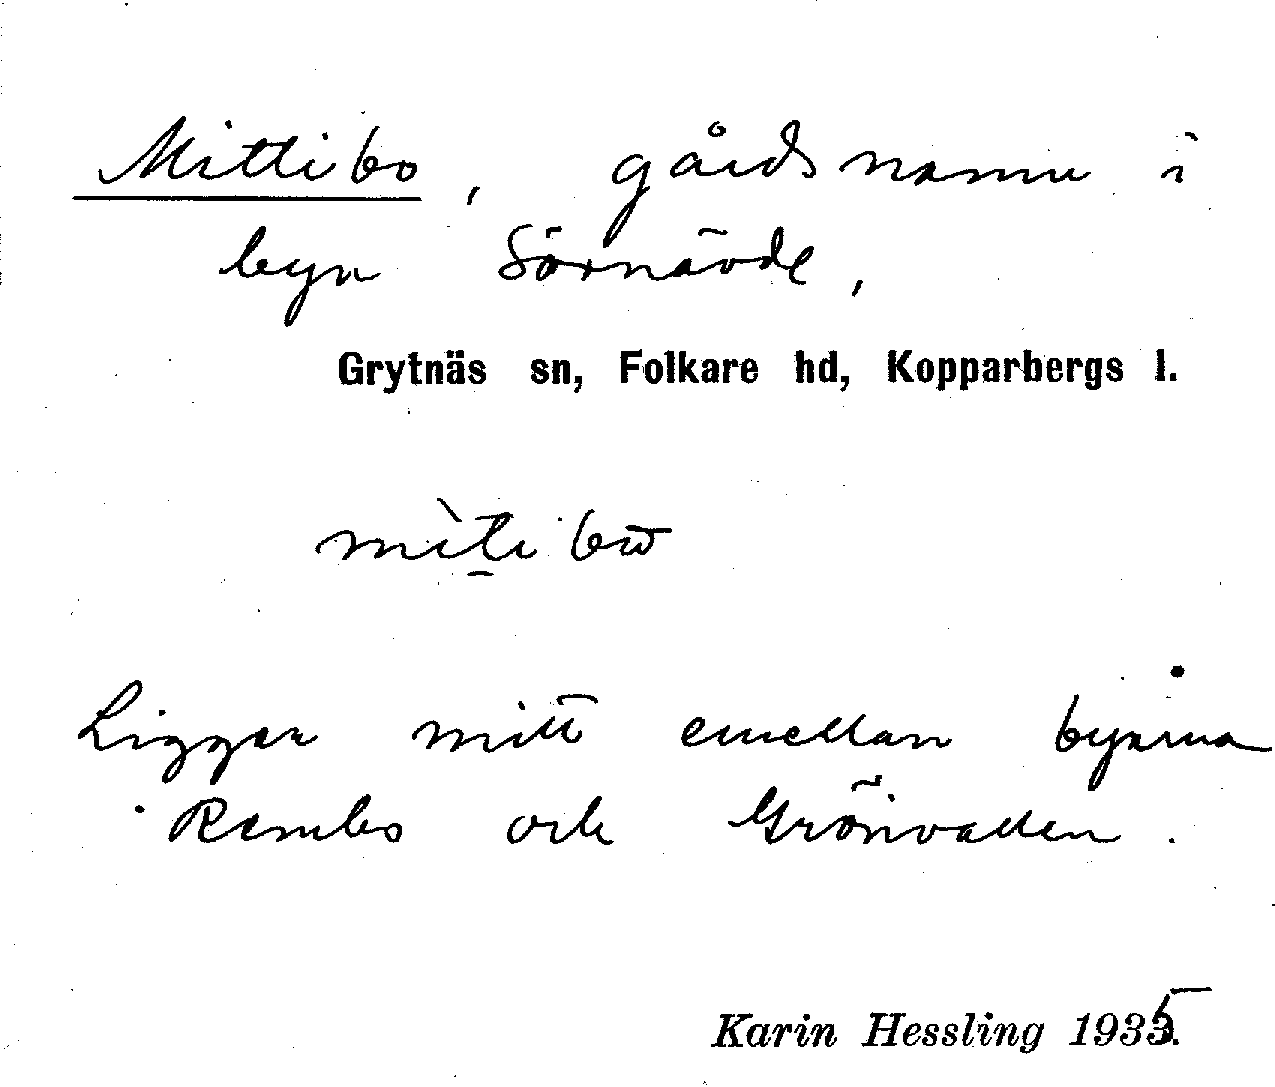 Mittibo, gårdsnamn i
byn Sörnävde,
Grytnäs sn, Folkare hd, Kopparbergs l.
mìti bω
Ligger mitt emellan byarna
Rembo och Grönvallen.
Karin Hessling 1935.